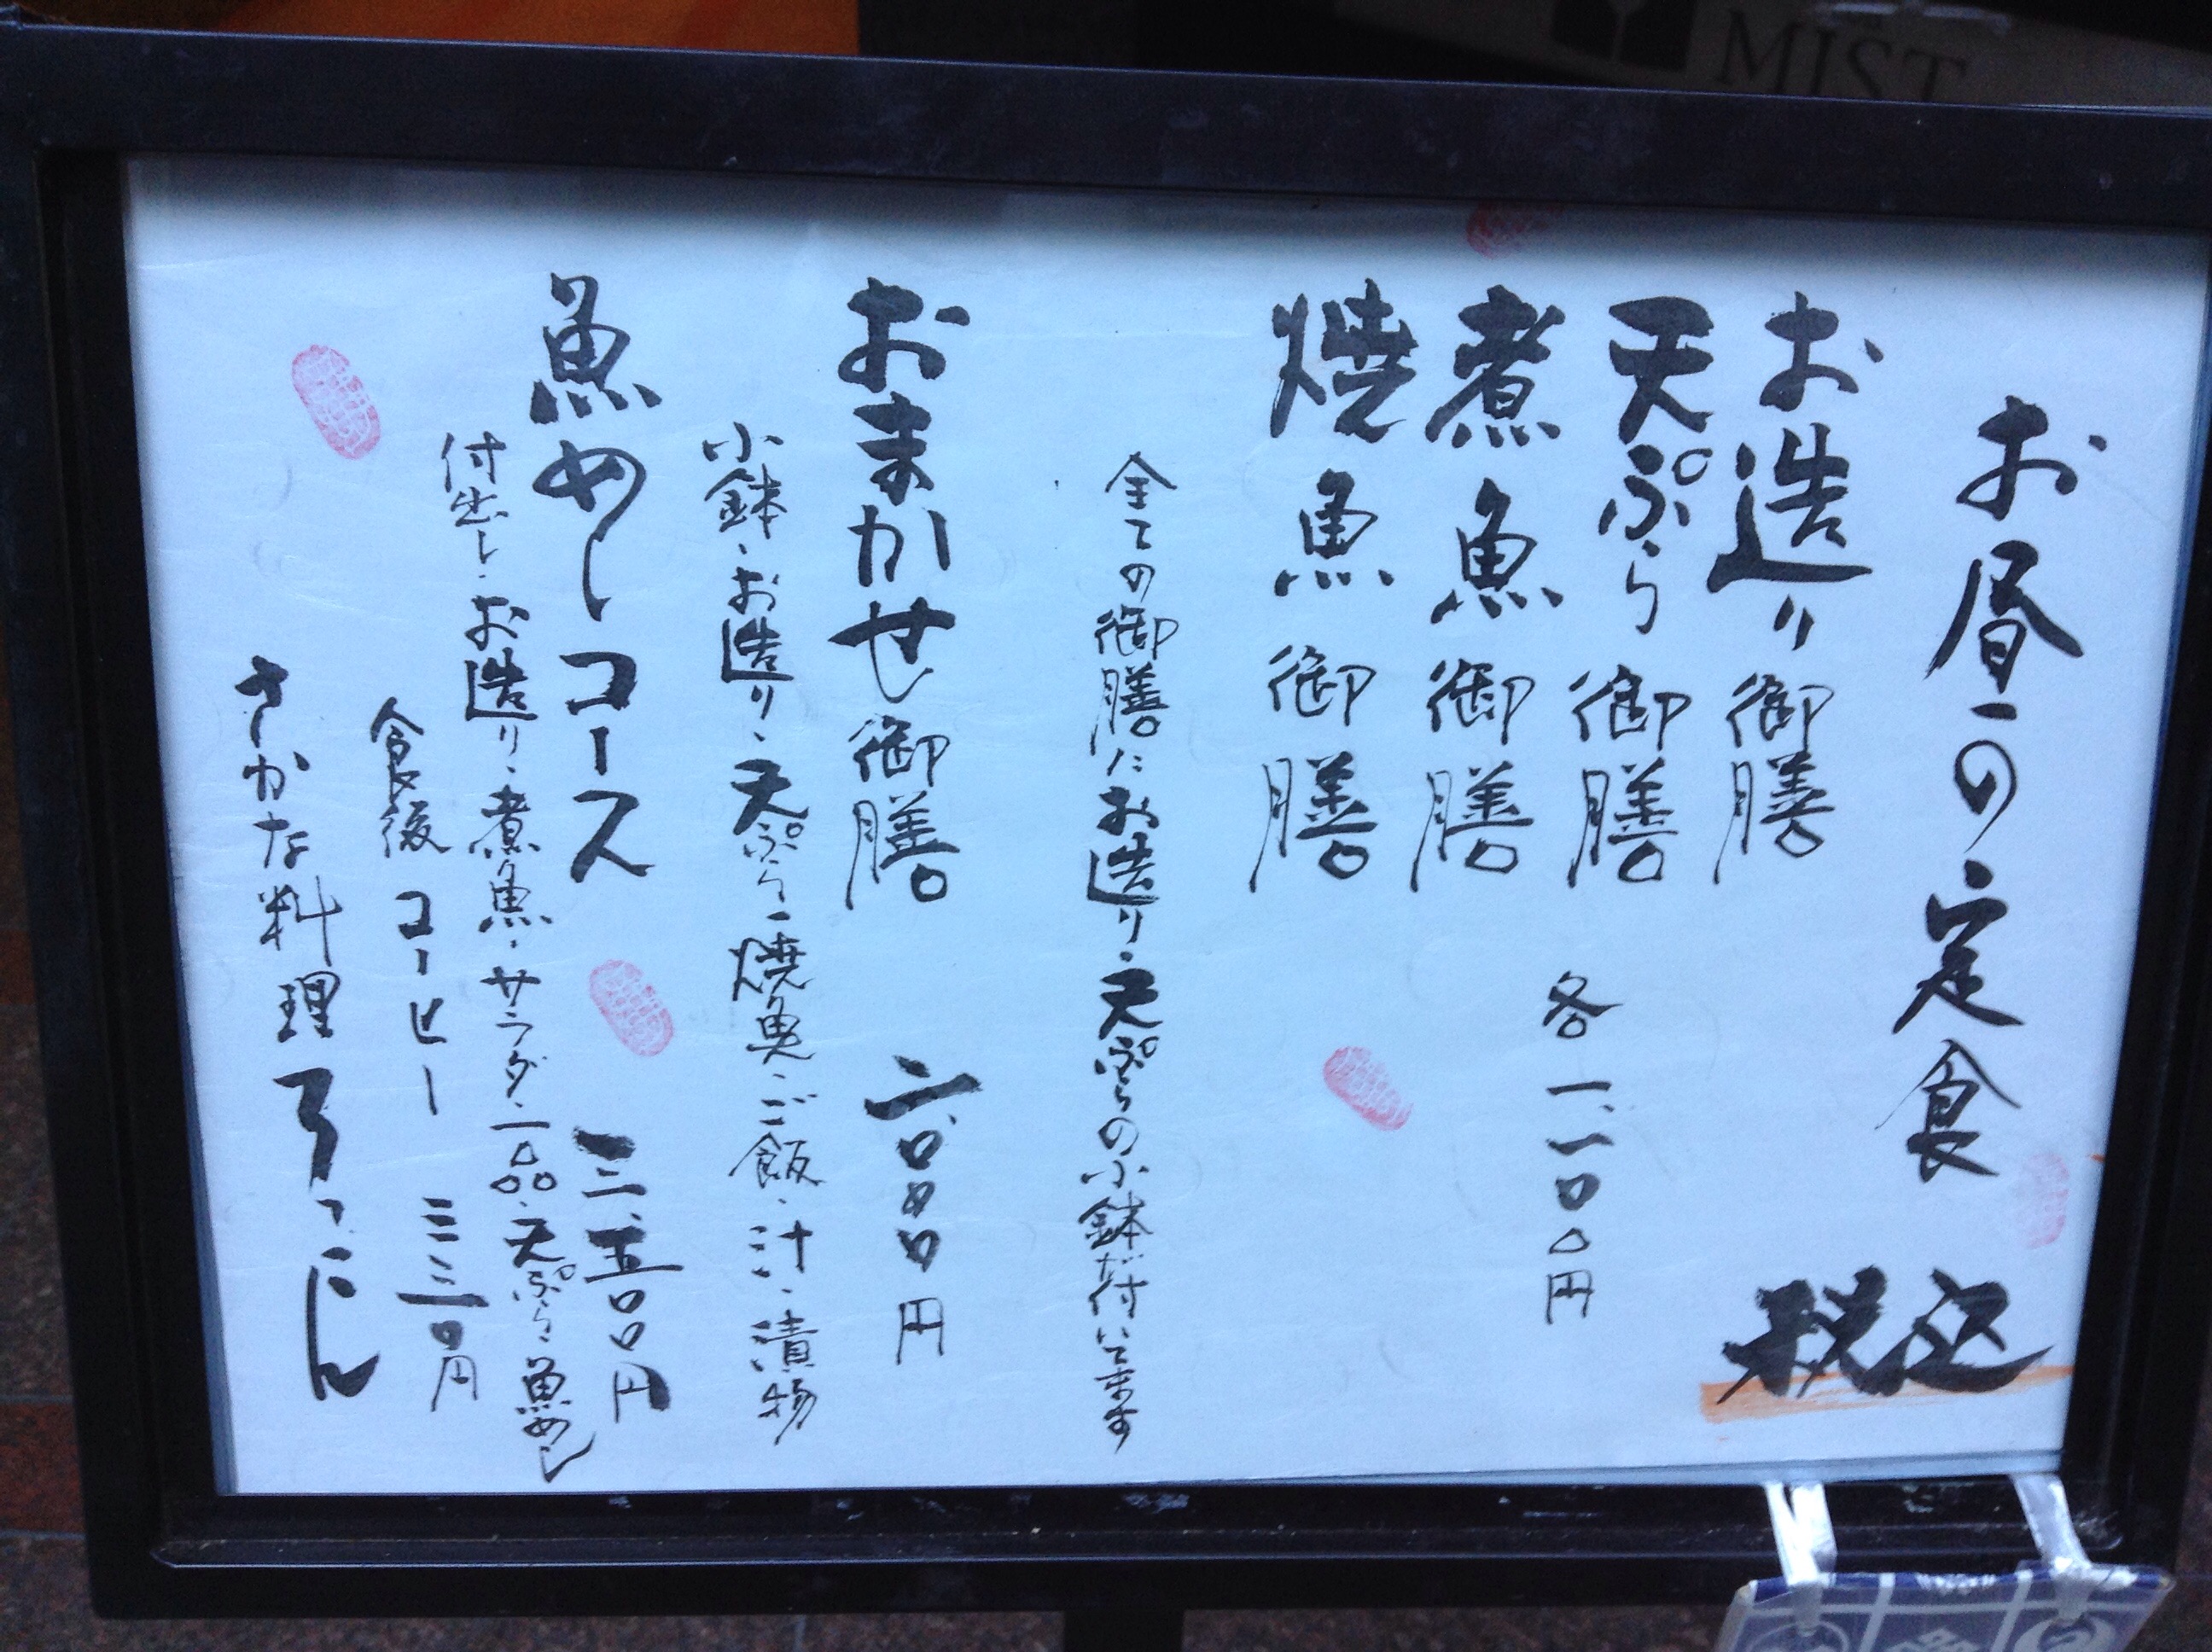 お昼の定食
税込
お造り御膳
天ぷら御膳
煮魚御膳
焼魚御膳
各一、一〇〇円
全ての御膳にお造り・天ぷらの小鉢が付いてます
おまかせ御膳 二、〇〇〇円
小鉢・お造り・天ぷら・焼魚・ご飯・汁・漬物
魚めしコース 三、五〇〇円
付出し・お造り・煮魚・サラダ・一品・天ぷら・魚めし
食後コーヒー 三三〇円
さかな料理
MIST